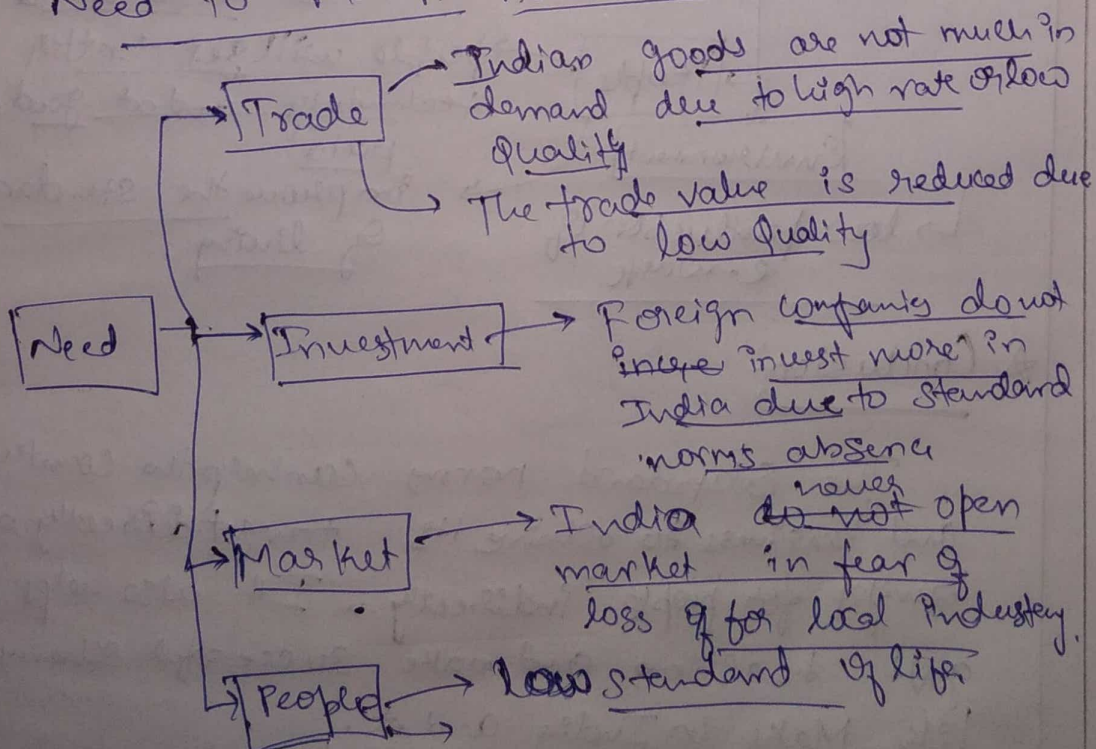 Need to
Trade
Indian goods are not much in
demand due to high rate or low
Quality
The trade value is reduced due
to low Quality
Need
Investment
Foreign companies do not
incre invest more in
India due to standard
norms absence
never
India do not open
Market
market in fear of
loss of for local Industry.
People
low standard of life